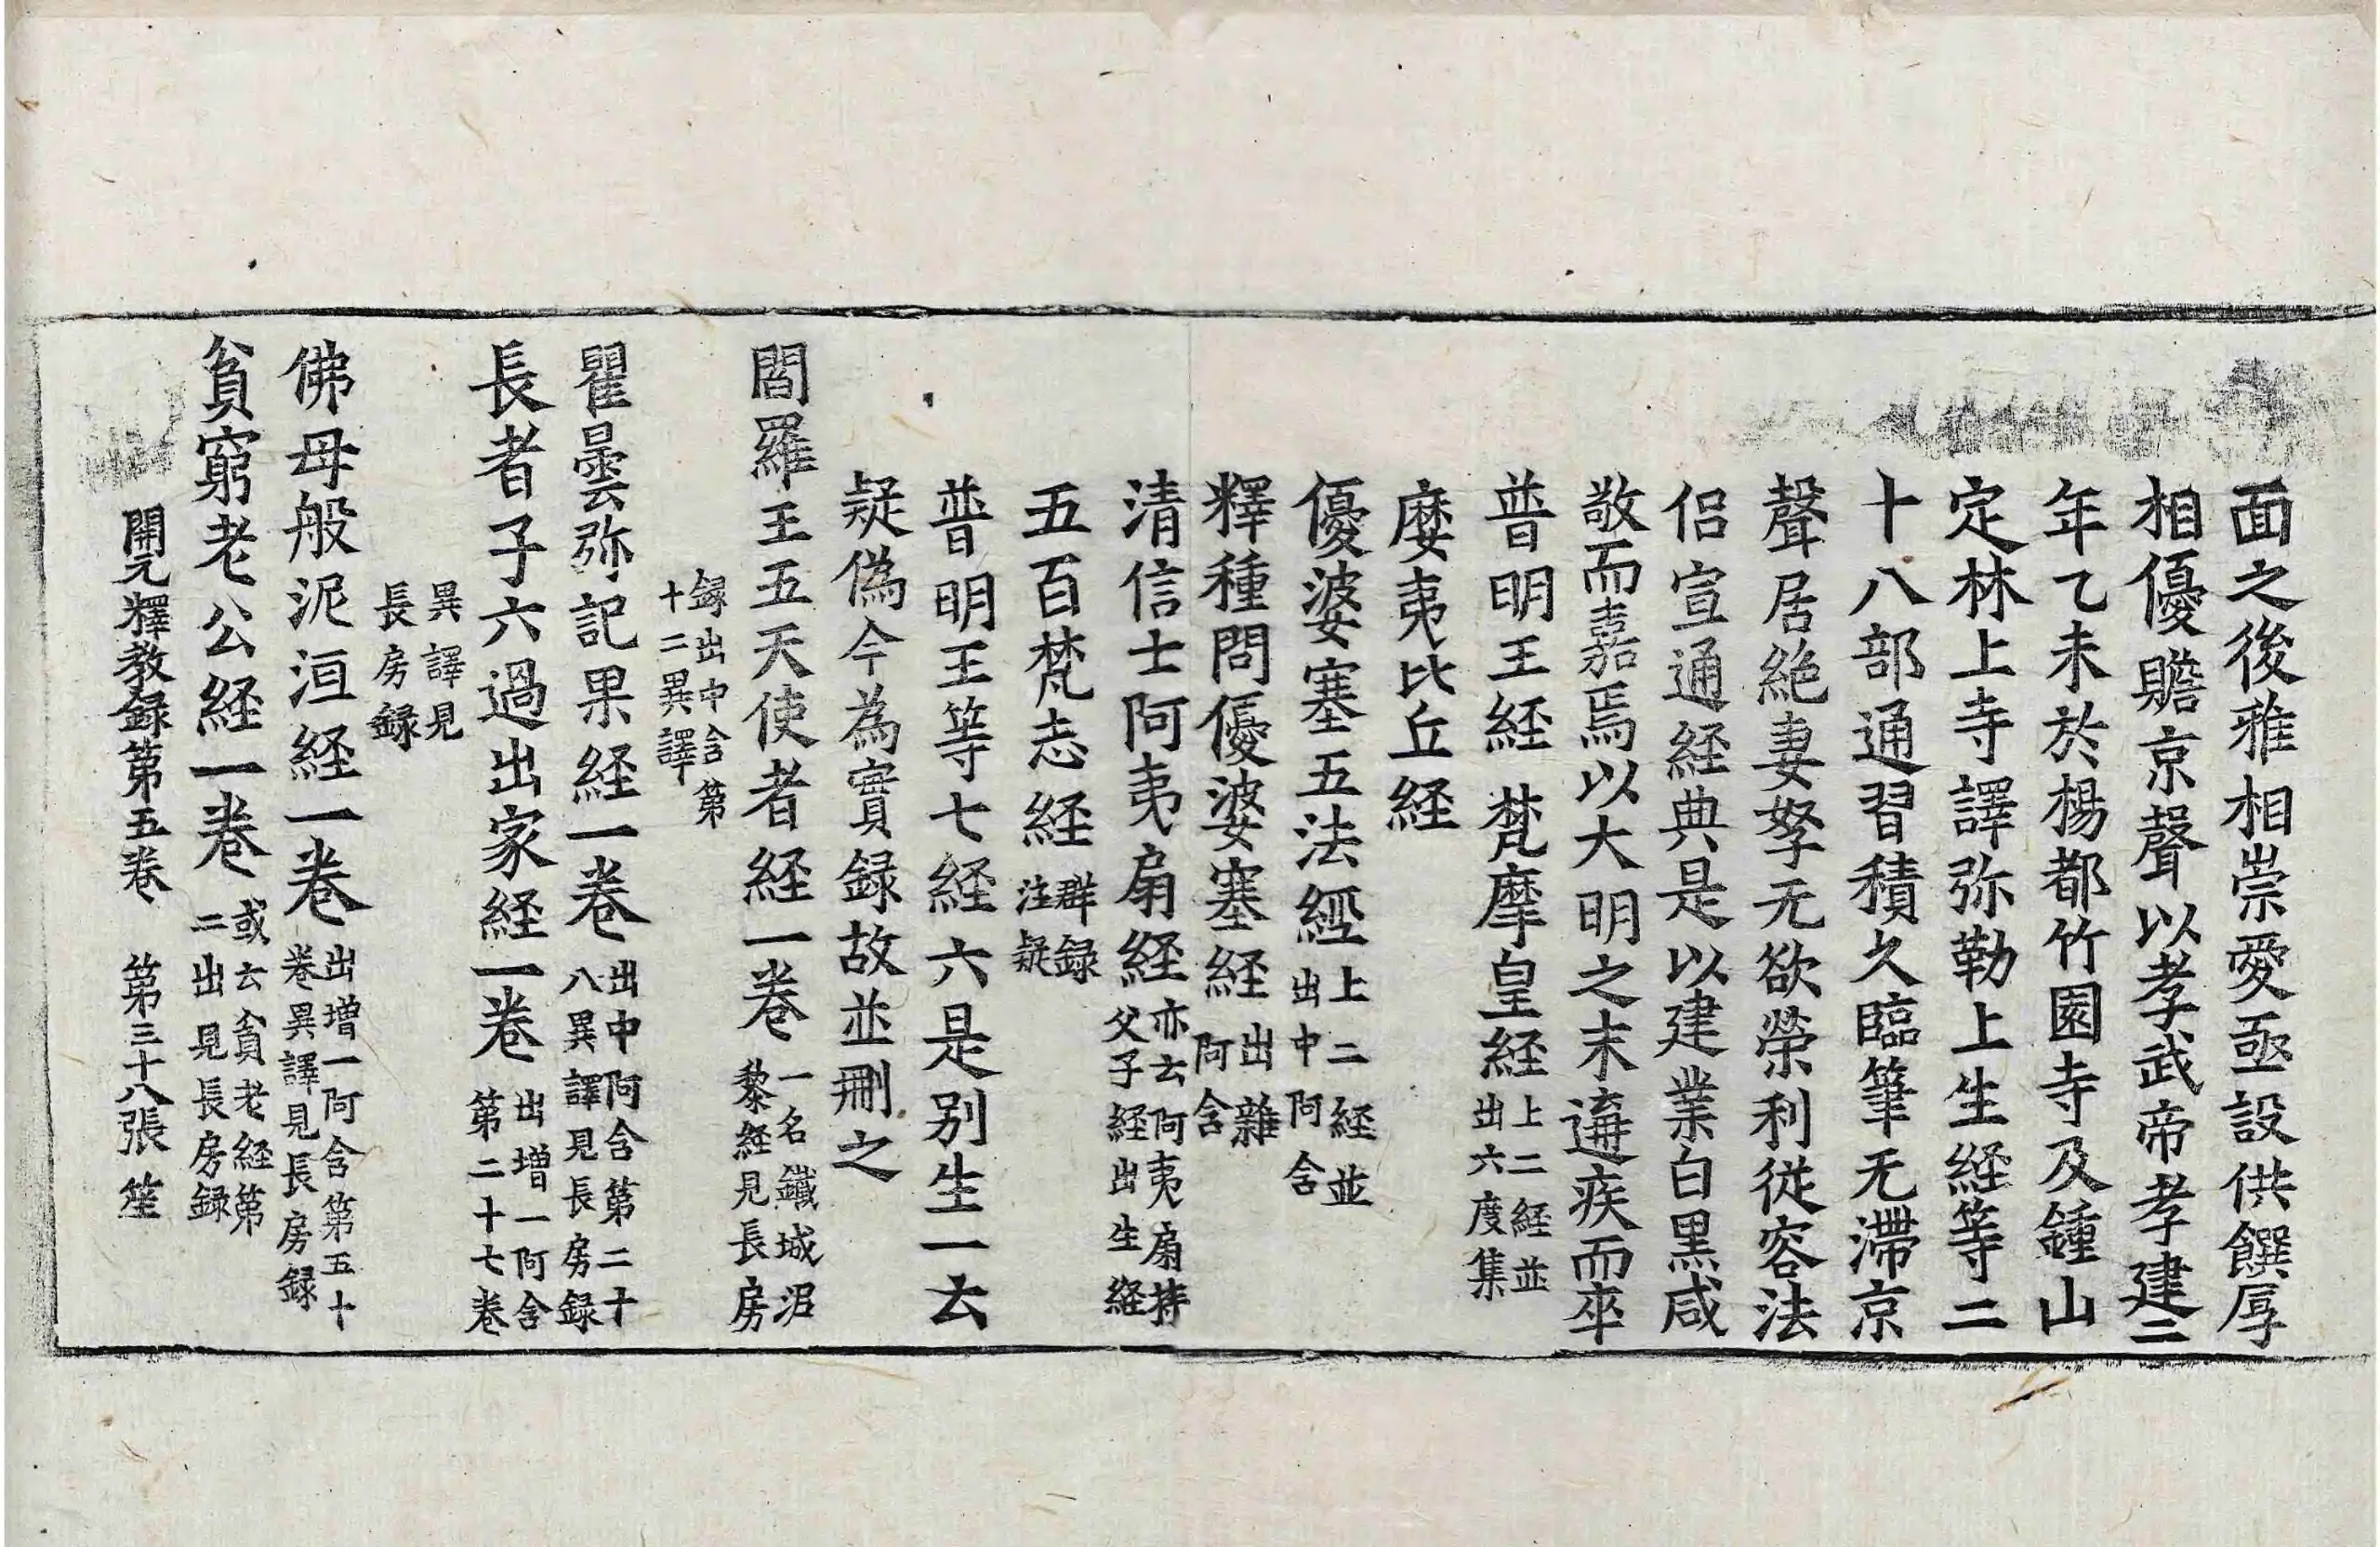 面之後雅相崇愛亟設供饌厚
相優贍京聲以孝武帝孝建二
年乙未於楊都竹園寺及鍾山
定林上寺譯弥勒上生経等二
十八部通習積久臨筆无滯京
聲居絶妻孥无欲榮利從容法
侣宣通経典是以建業白黒咸
敬而嘉焉以大明之末遘疾而卒
普明王経 梵摩皇経上二経並出六度集
㝹夷比丘経
優婆塞五法經上二経並出中阿含
釋種問優婆塞経出雜阿含
清信士阿夷扇経亦云阿夷扇持父子経出生経
五百梵志経群録注疑
普明王等七経六是别生一云
疑偽今為實録故並刪之
閻羅王五天使者経一卷一名鐵城泥黎経見長房
録出中含第十二異譯
瞿曇弥記果経一卷出中阿含第二十八異譯見長房録
長者子六過出家経一卷出増一阿含第二十七卷
異譯見長房録
佛母般泥洹経一卷出増一阿含第五十卷異譯見長房録
貧窮老公経一卷或云貧老経第二出見長房録
開元釋教録第五卷 第三十八張 笙